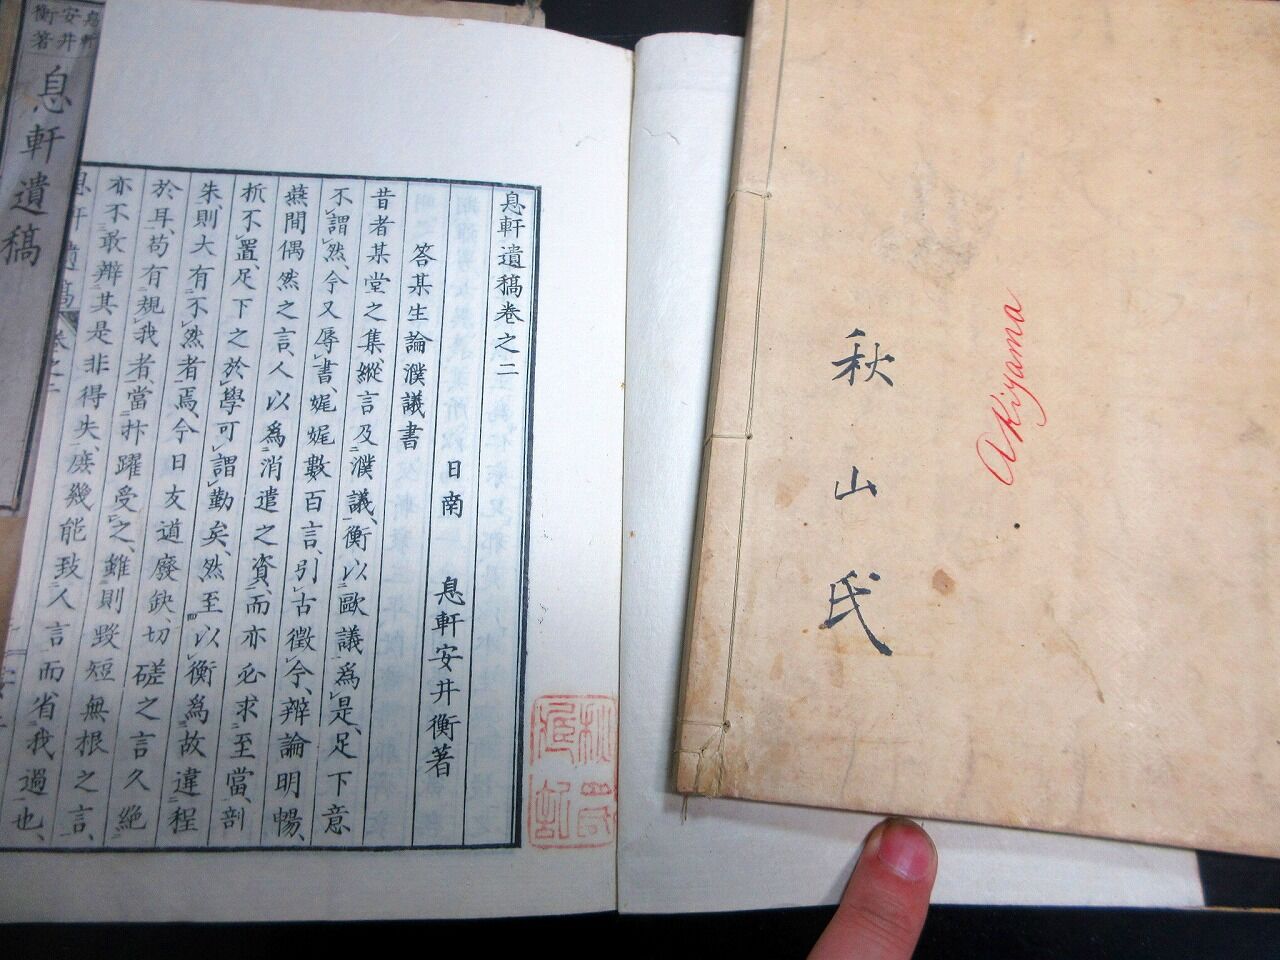 秋山氏
Akiyama
息軒遺稿卷之二
答某生論濮議書
日南　息軒安井衡著
昔者某堂之集、縱言及濮議、衡以歐議爲是、足下意
不謂然、今又辱書、娓娓數百言、引古徵今、辯論明暢、
燕間偶然之言、人以爲消遣之資、而亦必求至當、剖
析不置、足下之於學可謂勤矣、然至以衡爲故違程
朱、則大有不然者焉、今日友道廢缺、切磋之言久絕
於耳、苟有規我者、當抃躍受之、雖則毀短無根之言、
亦不敢辯其是非得失、庶幾能致人言而省我過也、
息軒遺稿 卷之二
息軒
安井
衡著
息軒遺稿
秋氏